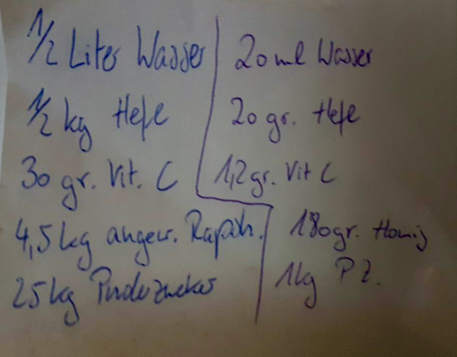 1/2 Liter Wasser
1/2 kg Hefe
30 gr. Vit. C
4,5 kg angew. Rapsh.
25 kg Puderzucker
20 ml Wasser
20 gr. Hefe
1,2 gr. Vit C
180 gr. Honig
1 kg P Z.